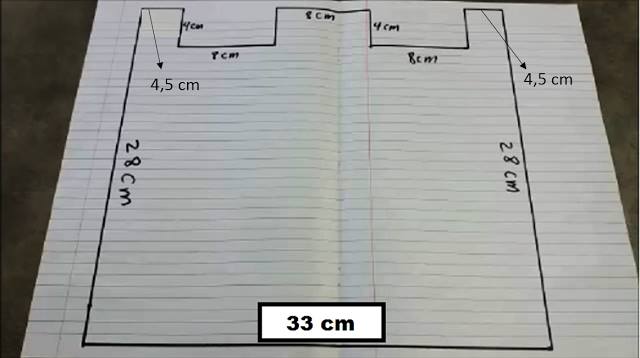 8cm
4cm
4cm
8cm
8cm
4,5 cm
4,5 cm
28cm
28cm
33 cm